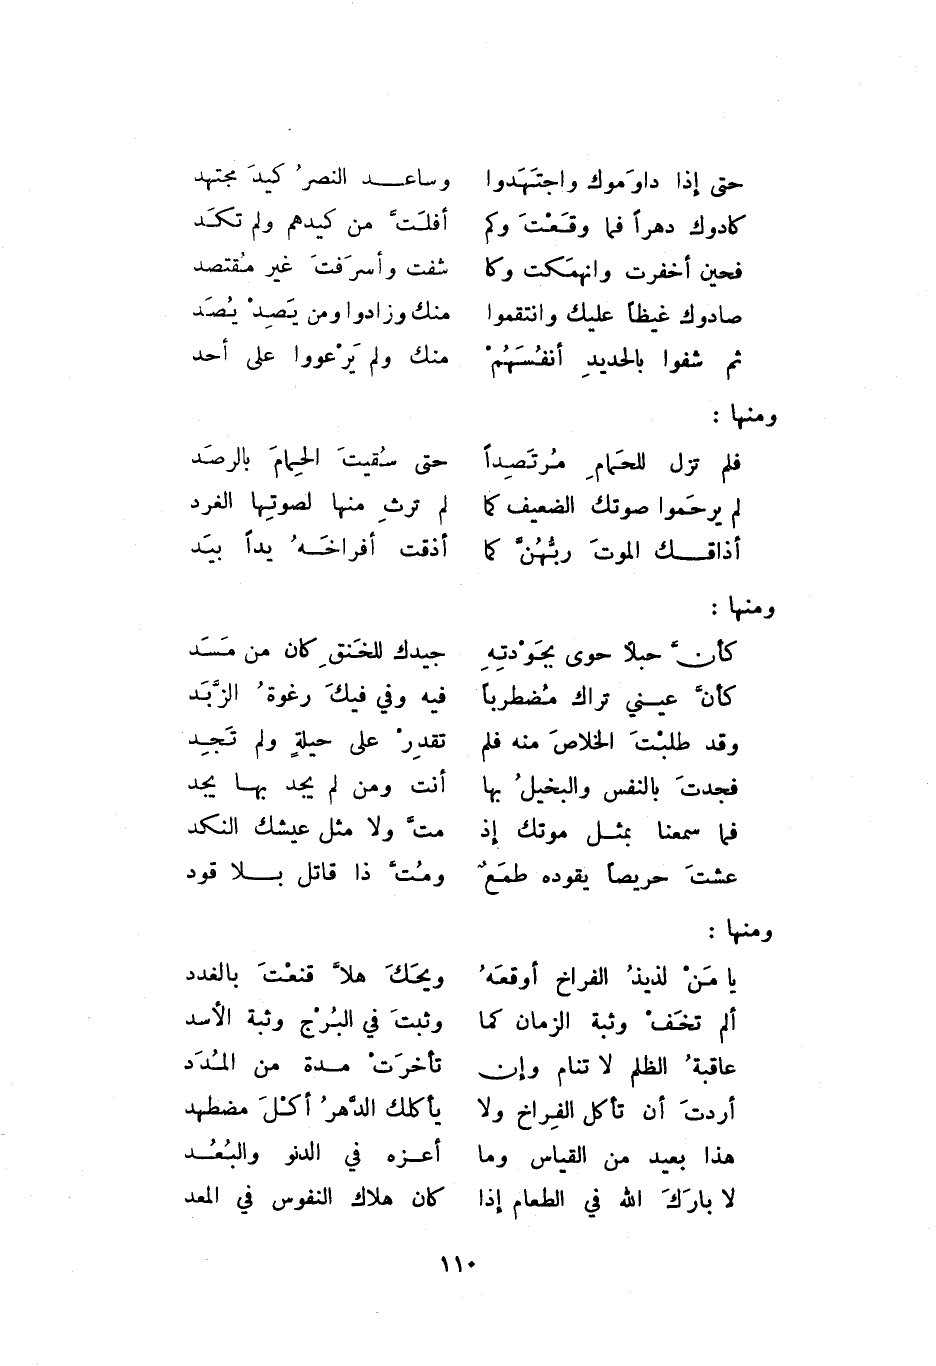 حتى إذا داوَموك واجتَهَدوا وساعــد النصرُ كيدَ مجتهد
كادوك دهراً فما وقَعْتَ وكم أفلتَّ من كيدهم ولم تكَد
فحين أخفرت وانهمَكت وكا شفت وأسرَفتَ غير مُقتصد
صادوك غيظاً عليك وانتقموا منك وزادوا ومن يَصِدْ يُصَد
ثم شفوا بالحديدِ أنفُسَهُمْ منك ولم يَرْعووا على أحد
ومنها :
فلم تزل للحَمامِ مُرتَصِداً حتى سُقيتَ الحِمامَ بالرصَد
لم يرحَموا صوتك الضعيف كما لم ترثِ منها لصوتِها الغرد
أذاقــك الموتَ ربُّهُنَّ كما أذقت أفراخَــهُ يداً بيَد
ومنها :
كأنَّ حبلاً حوى بجَوْدتِهِ جيدك للخَنقِ كان من مَسَد
كأنَّ عيني تراك مُضطرباً فيه وفي فيكَ رغوةُ الزَّبَد
وقد طلبْتَ الخلاصَ منه فلم تقدِرْ على حيلةٍ ولم تَجِد
فجدتَ بالنفس والبخيلُ بها أنت ومن لم يجد بهــا يجد
فما سمعنا بمثــل موتك إذ متَّ ولا مثل عيشك النكد
عشتَ حريصاً يقوده طمَعٌ ومُتَّ ذا قاتل بــلا قود
ومنها :
يا مَنْ لذيذُ الفراخ أوقعَهُ ويحَكَ هلاَّ قنعْتَ بالغدد
ألم تخَفْ وثبة الزمان كما وثبتَ في البُرْج وثبة الأسد
عاقبةُ الظلم لا تنام وإن تأخرَتْ مــدة من المُدَد
أردتَ أن تأكل الفِراخ ولا يأكلك الدَّهرُ أكْلَ مضطهد
هذا بعيد من القياس وما أعــزه في الدنو والبُعُــد
لا بارَكَ الله في الطعام إذا كان هلاك النفوس في المعد
١١٠